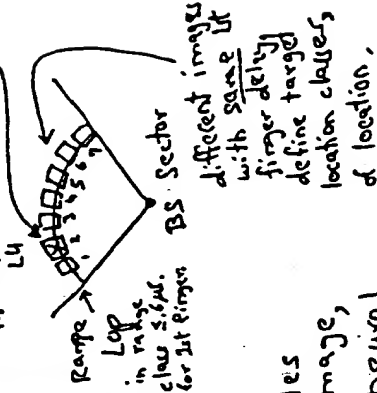 L4
1 2 3 4 5 6 7
Range
LOP
in range
class
for 1st finger
BS Sector
different images
with same
finger delay
define target
location classes,
of location.
les
mage,